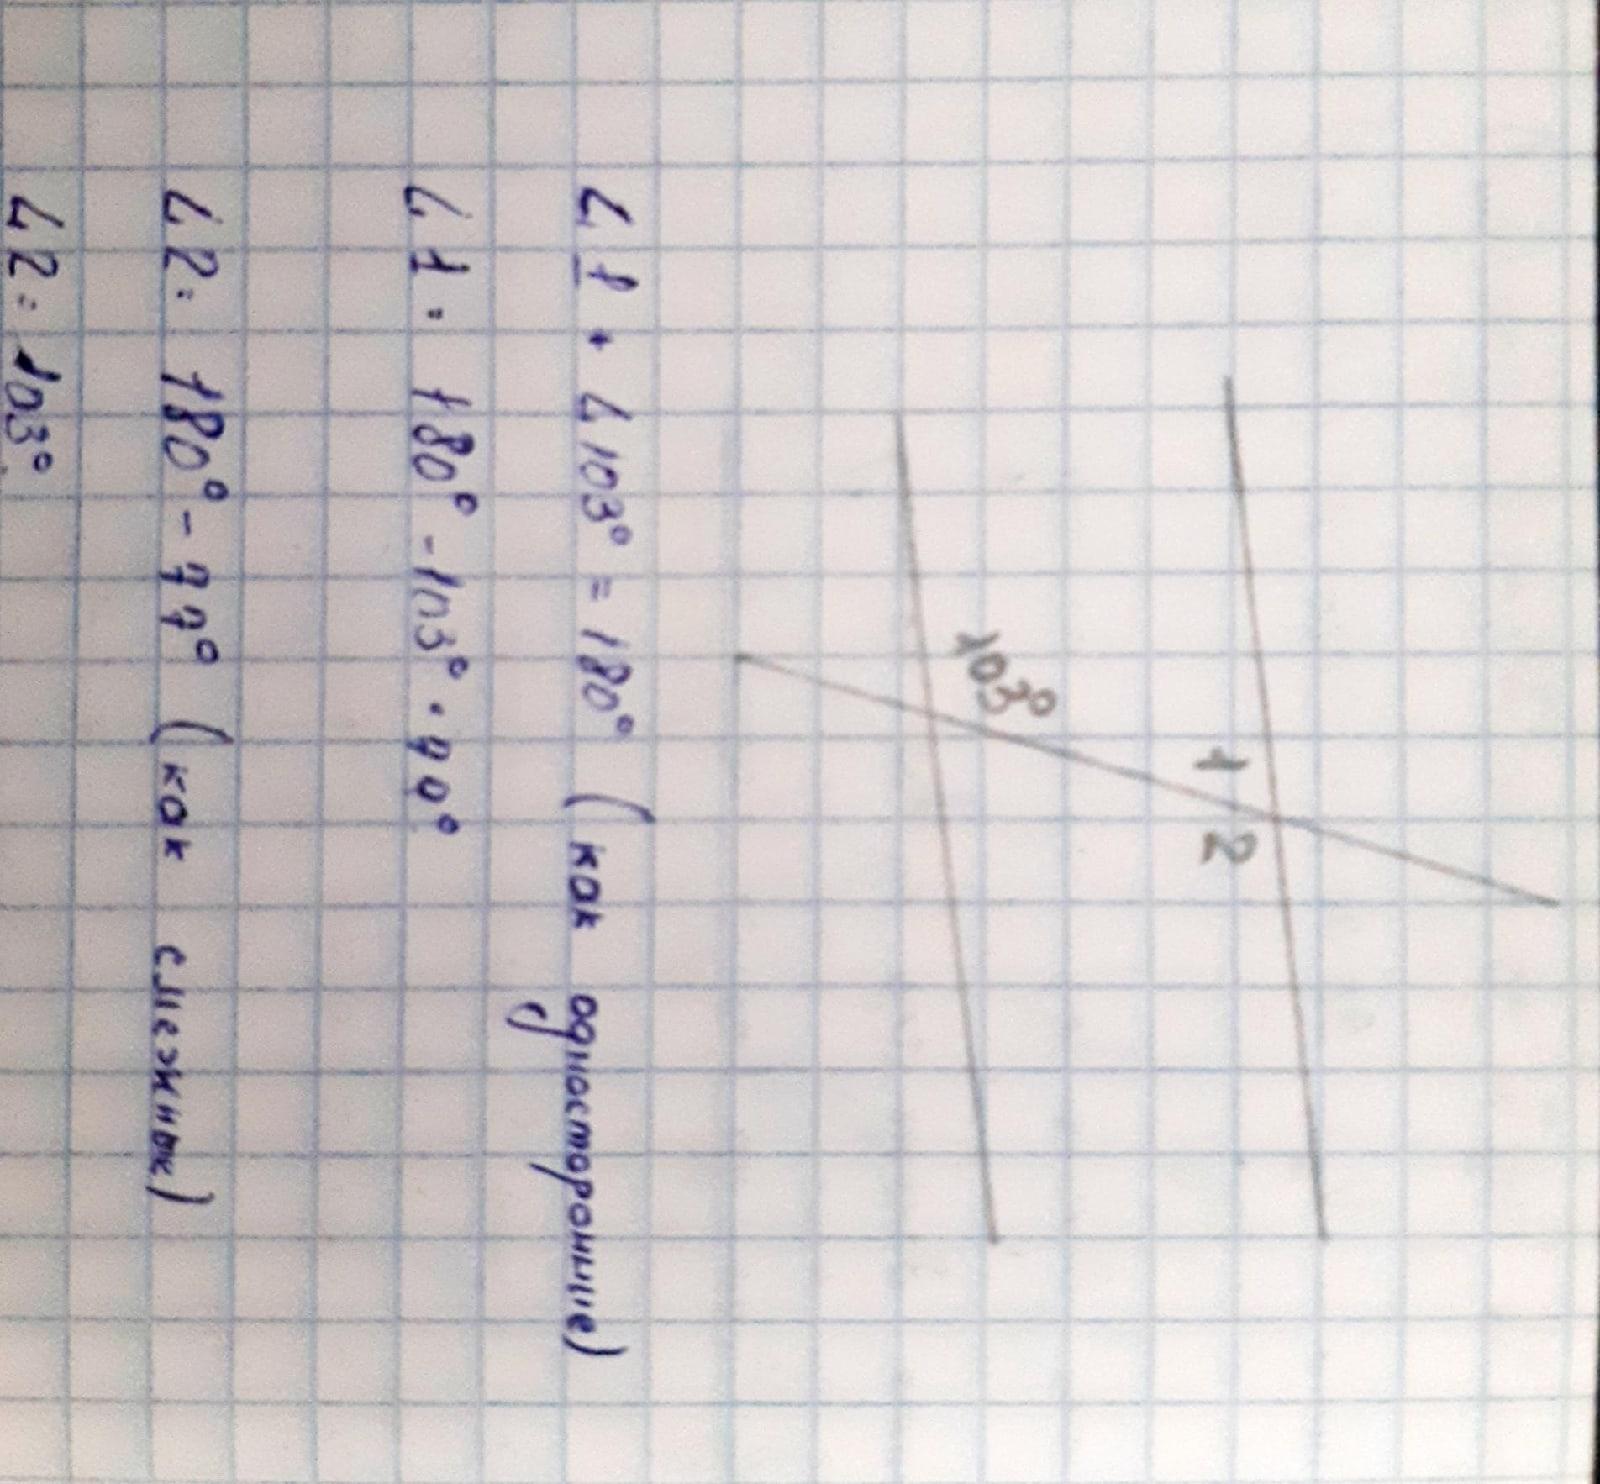 1 2
103°
∠1 + ∠103° = 180° (как односторонние)
∠1 = 180° - 103° = 77°
∠2 = 180° - 77° (как смежные)
∠2 = 103°